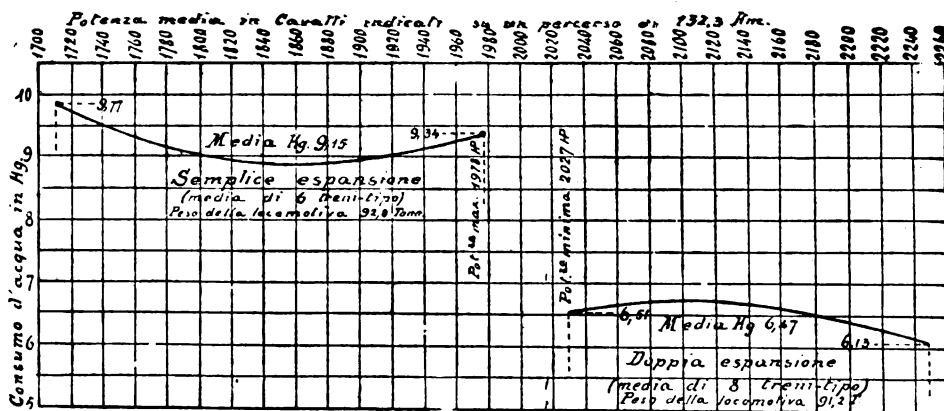 Potenza media in Cavalli indicati su un percorso di 132,3 Km.
1700 1720 1740 1760 1780 1800 1820 1840 1860 1880 1900 1920 1940 1960 1980 2000 2020 2040 2060 2080 2100 2120 2140 2160 2180 2200 2220 2240 2260
Consumo d'acqua in Kg.
10
9
8
7
6
5
9,77
Media Kg. 9,15
9,34
Semplice espansione
(media di 6 treni-tipo)
Peso della locomotiva 92,8 Tonn.
Pot.za max. 1978 HP
Pot.za minima 2027 HP
6,51
Media Kg 6,47
6,13
Doppia espansione
(media di 8 treni-tipo)
Peso della locomotiva 91,2 T